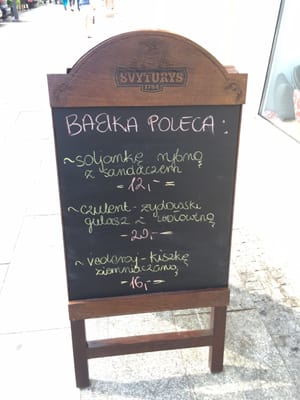 SVYTURYS
1784
BAŁKA POLECA :
~ soljankę rybną
z sandaczem
- 12,- =
~ czulent - żydowski
gulasz z wołowiną
- 29,- -
~ vedaraj - kiszkę
ziemniaczaną
= 16,- =